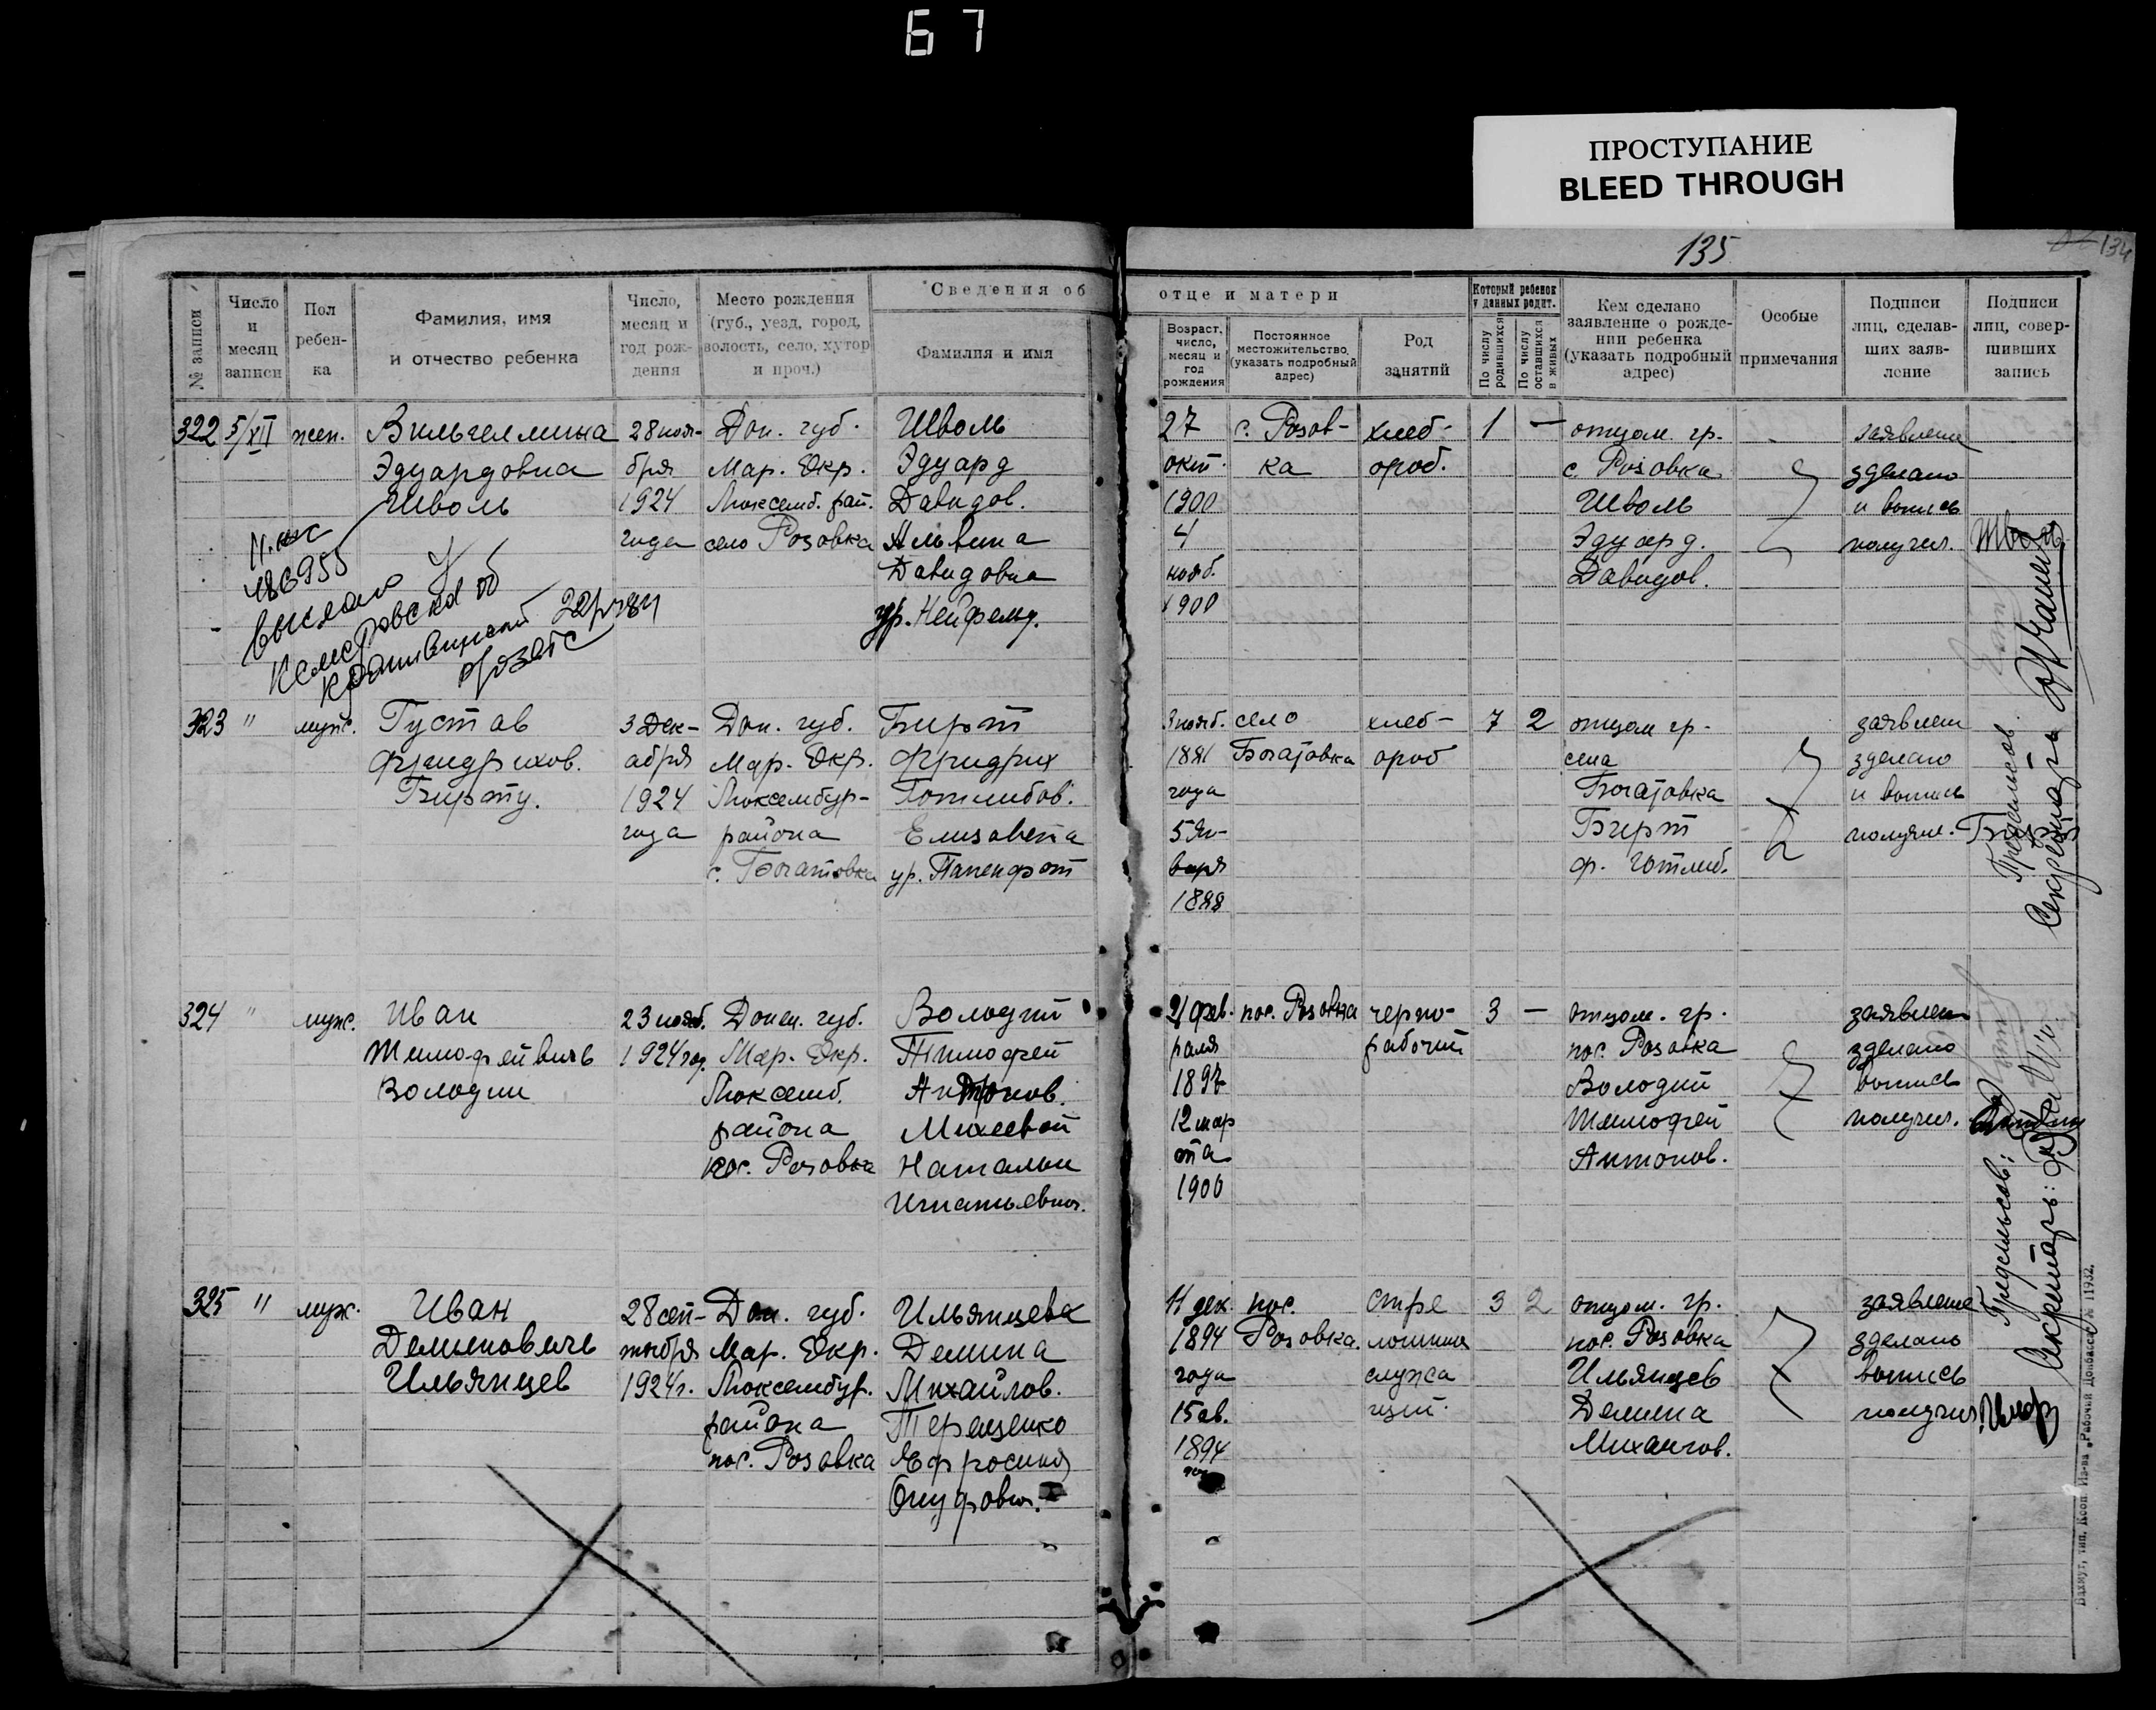 67
ПРОСТУПАНИЕ
BLEED THROUGH
135
134
№ записи
Число и месяц записи
Пол ребен-ка
Фамилия, имя и отчество ребенка
Число, месяц и год рож-дения
Место рождения (губ., уезд, город, волость, село, хутор и проч.)
Сведения об отце и матери
Фамилия и имя
Возраст, число, месяц и год рождения
Постоянное местожительство (указать подробный адрес)
Род занятий
Который ребенок у данных родит.
По числу родившихся
По числу оставшихся в живых
Кем сделано заявление о рожде-нии ребенка (указать подробный адрес)
Особые примечания
Подписи лиц, сделав-ших заяв-ление
Подписи лиц, совер-шивших запись
322 5/XII жен. Вильгелмина 28 нояб- Дон. губ. Шволь 27 с. Розов- хлеб- 1 — отцом. гр. заявление
Эдуардовна бря Мар. Окр. Эдуард окт. ка ороб. с. Розовка зделано
Шволь 1924 Люксемб. рай. Давидов. 1900 Шволь и выпись
года село Розовка Альвина 4 Эдуард. получил.
Давидовна нояб. Давидов.
ур. Нейфельд. 1900
выслано
323 " муж. Густав 3 Дек- Дон. губ. Бирт 3 нояб. село хлеб- 7 2 отцом гр. заявлен
Фридрихов. абря Мар. Окр. Фридрих 1881 Богатовка ороб села зделано
Бирт 1924 Люксембур- Готлибов. года Богатовка и выпись
года района Елизавета 5 Ян- Бирт получил.
с. Богатовка ур. Папенфот варя ф. Готлиб.
1888
Секретарь
324 " муж. Иван 23 нояб. Донец. губ. Володин 21 фев- пос. Розовка черно- 3 — отцом. гр. заявлен
Тимофейвичь 1924 год. Мар. Окр. Тимофей раля рабочий пос. Розовка зделано
Володин Люксемб. Антонов. 189 Володин выпись
района Михеевой 12 мар Тимофей получил.
пос. Розовка Наталии та Антонов.
Игнатьевна. 1900
Секретарь:
325 " муж. Иван 28 сен- Дон. губ. Ильянцева 11 дек. пос. стре 3 2 отцом. гр. заявление
Деминовичь тября Мар. Окр. Демина 1894 Розовка. пос. Розовка зделано
Ильянцев 1924 г. Люксембур. Михайлов. года служа Ильянцев выпись
района Терещенко 15 ав. щий. Демина получил
пос. Розовка Ефросиня 1894 Михайлов.
Онуфровна.